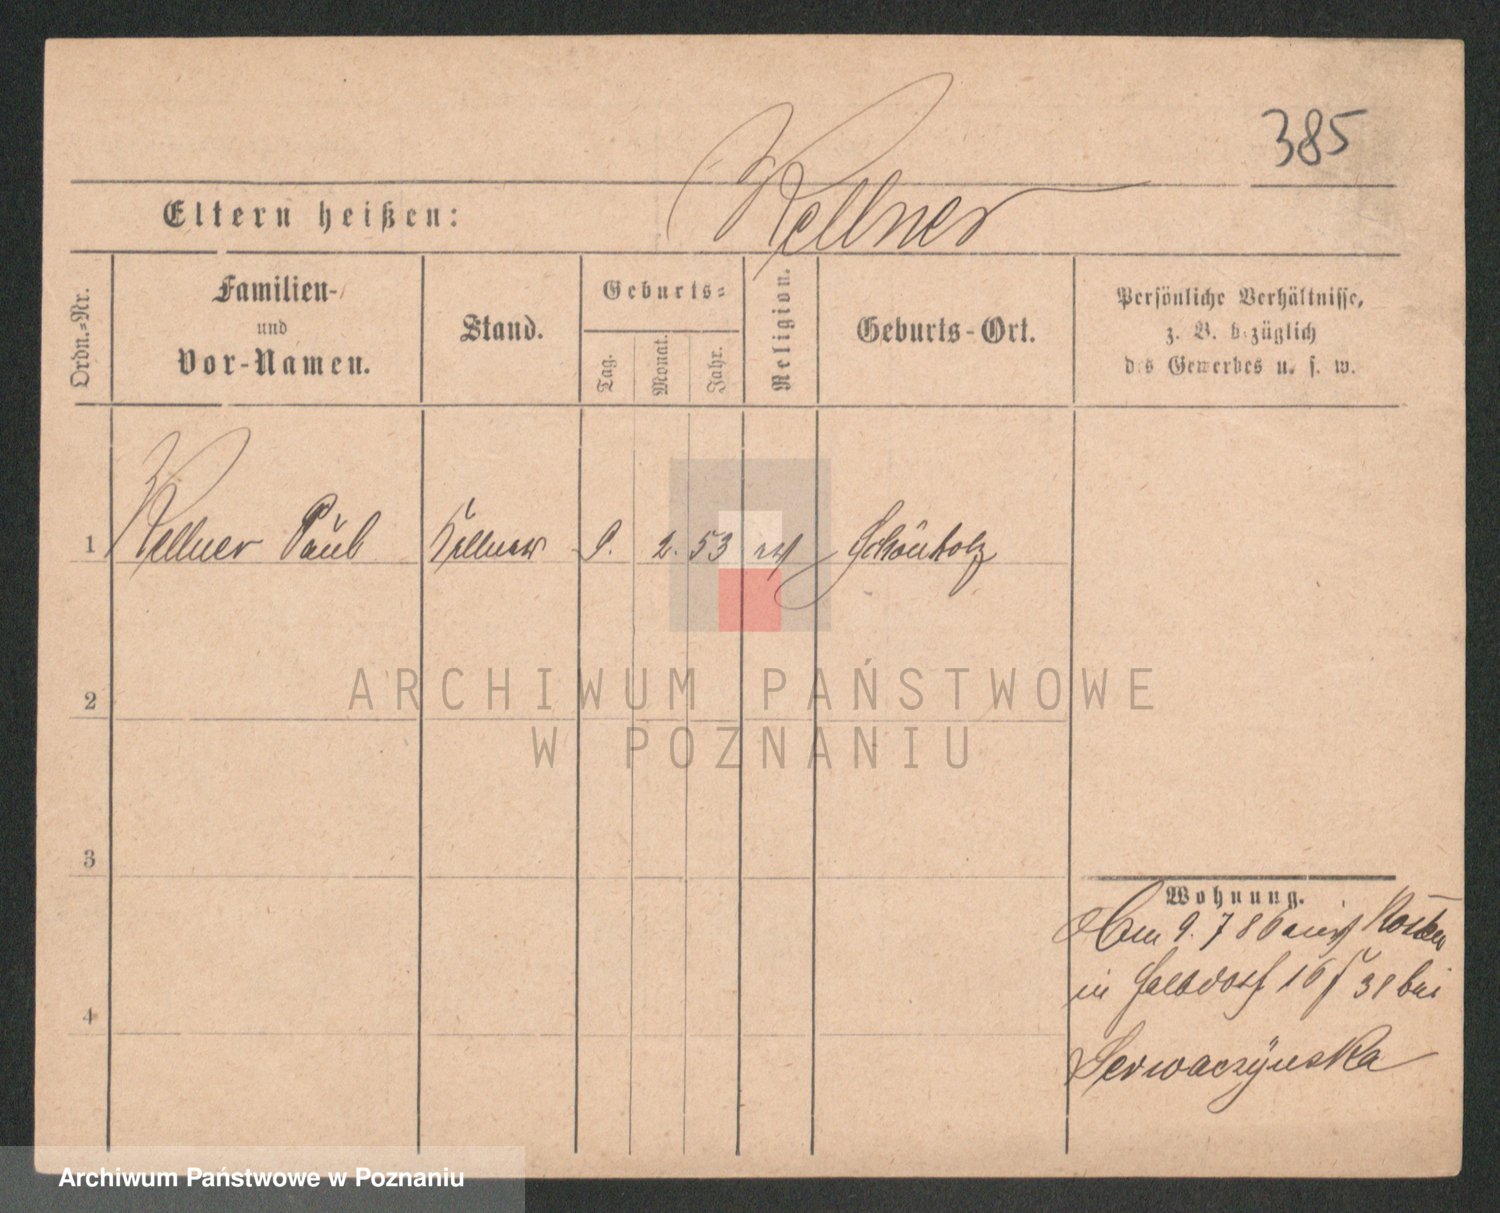 385
Kellner
Eltern heißen:
Ordn.-Nr.
Familien-
und
Vor-Namen.
Stand.
Geburts-
Tag.
Monat.
Jahr.
Religion.
Geburts-Ort.
Persönliche Verhältnisse,
z. B. bezüglich
des Gewerbes u. s. w.
1 Kellner Paul Kellner 9. 2. 53 Schönholz
2
3
4
Wohnung.
Am 9. 7 86
in 38 bei
Serwaczÿnska
ARCHIWUM PAŃSTWOWE
W POZNANIU
Archiwum Państwowe w Poznaniu